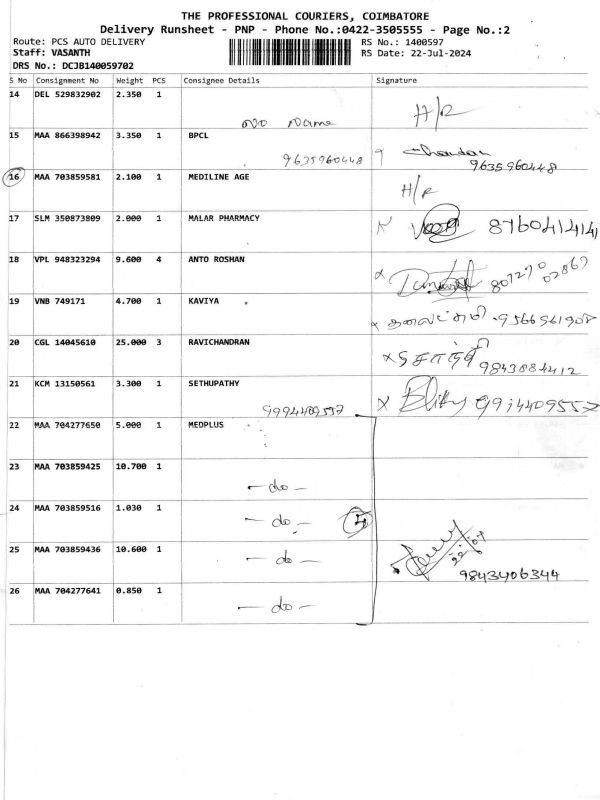 THE PROFESSIONAL COURIERS, COIMBATORE
Delivery Runsheet - PNP - Phone No.:0422-3505555 - Page No.:2
Route: PCS AUTO DELIVERY RS No.: 1400597
Staff: VASANTH RS Date: 22-Jul-2024
DRS No.: DCJB140059702
S No Consignment No Weight PCS Consignee Details Signature
14 DEL 529832902 2.350 1 No Name H/R
15 MAA 866398942 3.350 1 BPCL
9635960448 9635960448
16 MAA 703859581 2.100 1 MEDILINE AGE H/R
17 SLM 350873809 2.000 1 MALAR PHARMACY 8760414141
18 VPL 948323294 9.600 4 ANTO ROSHAN 807270 02867
19 VNB 749171 4.700 1 KAVIYA 9566961908
20 CGL 14045610 25.000 3 RAVICHANDRAN 9843884412
21 KCM 13150561 3.300 1 SETHUPATHY
9994409557 9994409557
22 MAA 704277650 5.000 1 MEDPLUS
23 MAA 703859425 10.700 1 - do -
24 MAA 703859516 1.030 1 - do - 5
25 MAA 703859436 10.600 1 - do - 22/07
9843406344
26 MAA 704277641 0.850 1 - do -